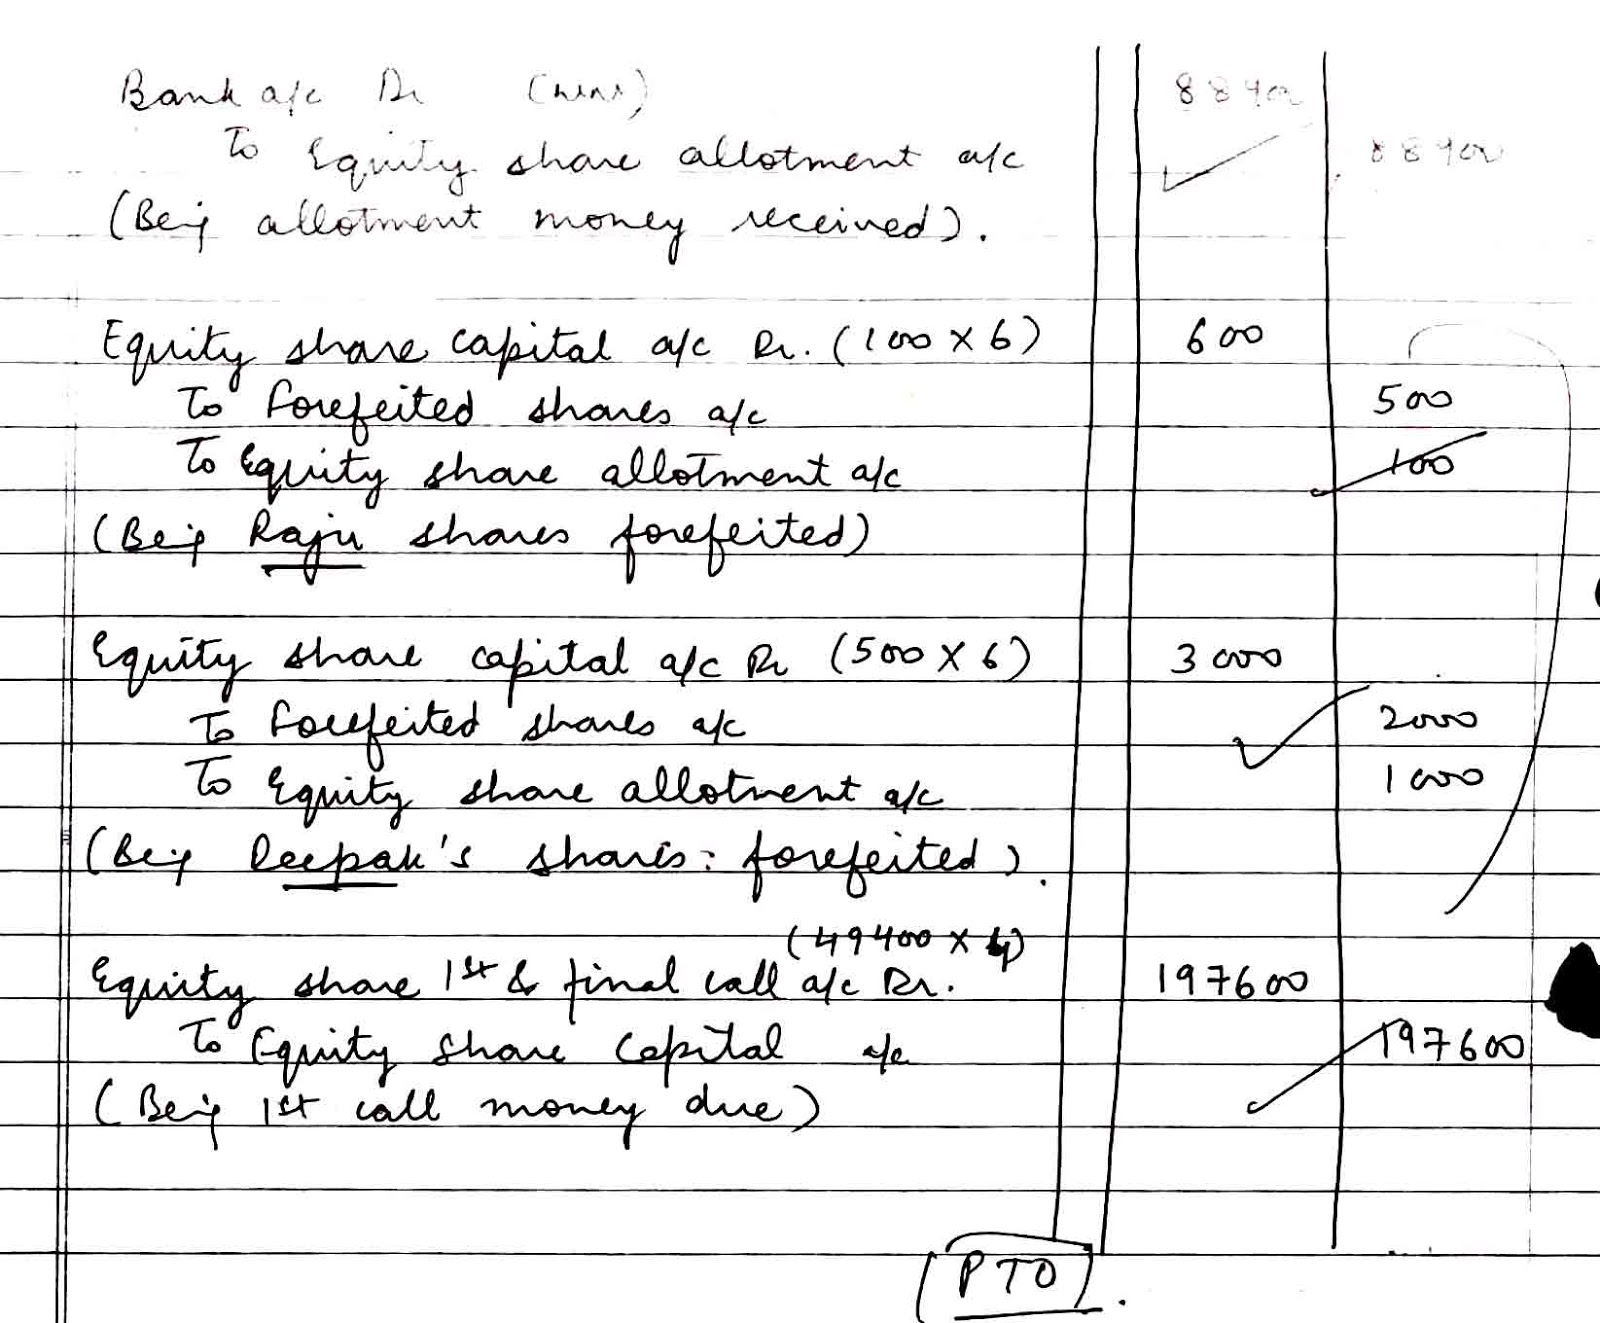 Bank a/c Dr 88900
To Equity share allotment a/c 88900
(Being allotment money received).
Equity share capital a/c Dr. (100 X 6) 600
To forefeited shares a/c 500
To Equity share allotment a/c 100
(Being Raju shares forefeited)
Equity share capital a/c Dr (500 X 6) 3000
To forefeited shares a/c 2000
To Equity share allotment a/c 1000
(Being Deepak's shares forefeited).
(49400 X 4)
Equity share 1st & final call a/c Dr. 197600
To Equity share capital a/c 197600
(Being 1st call money due)
(PTO).